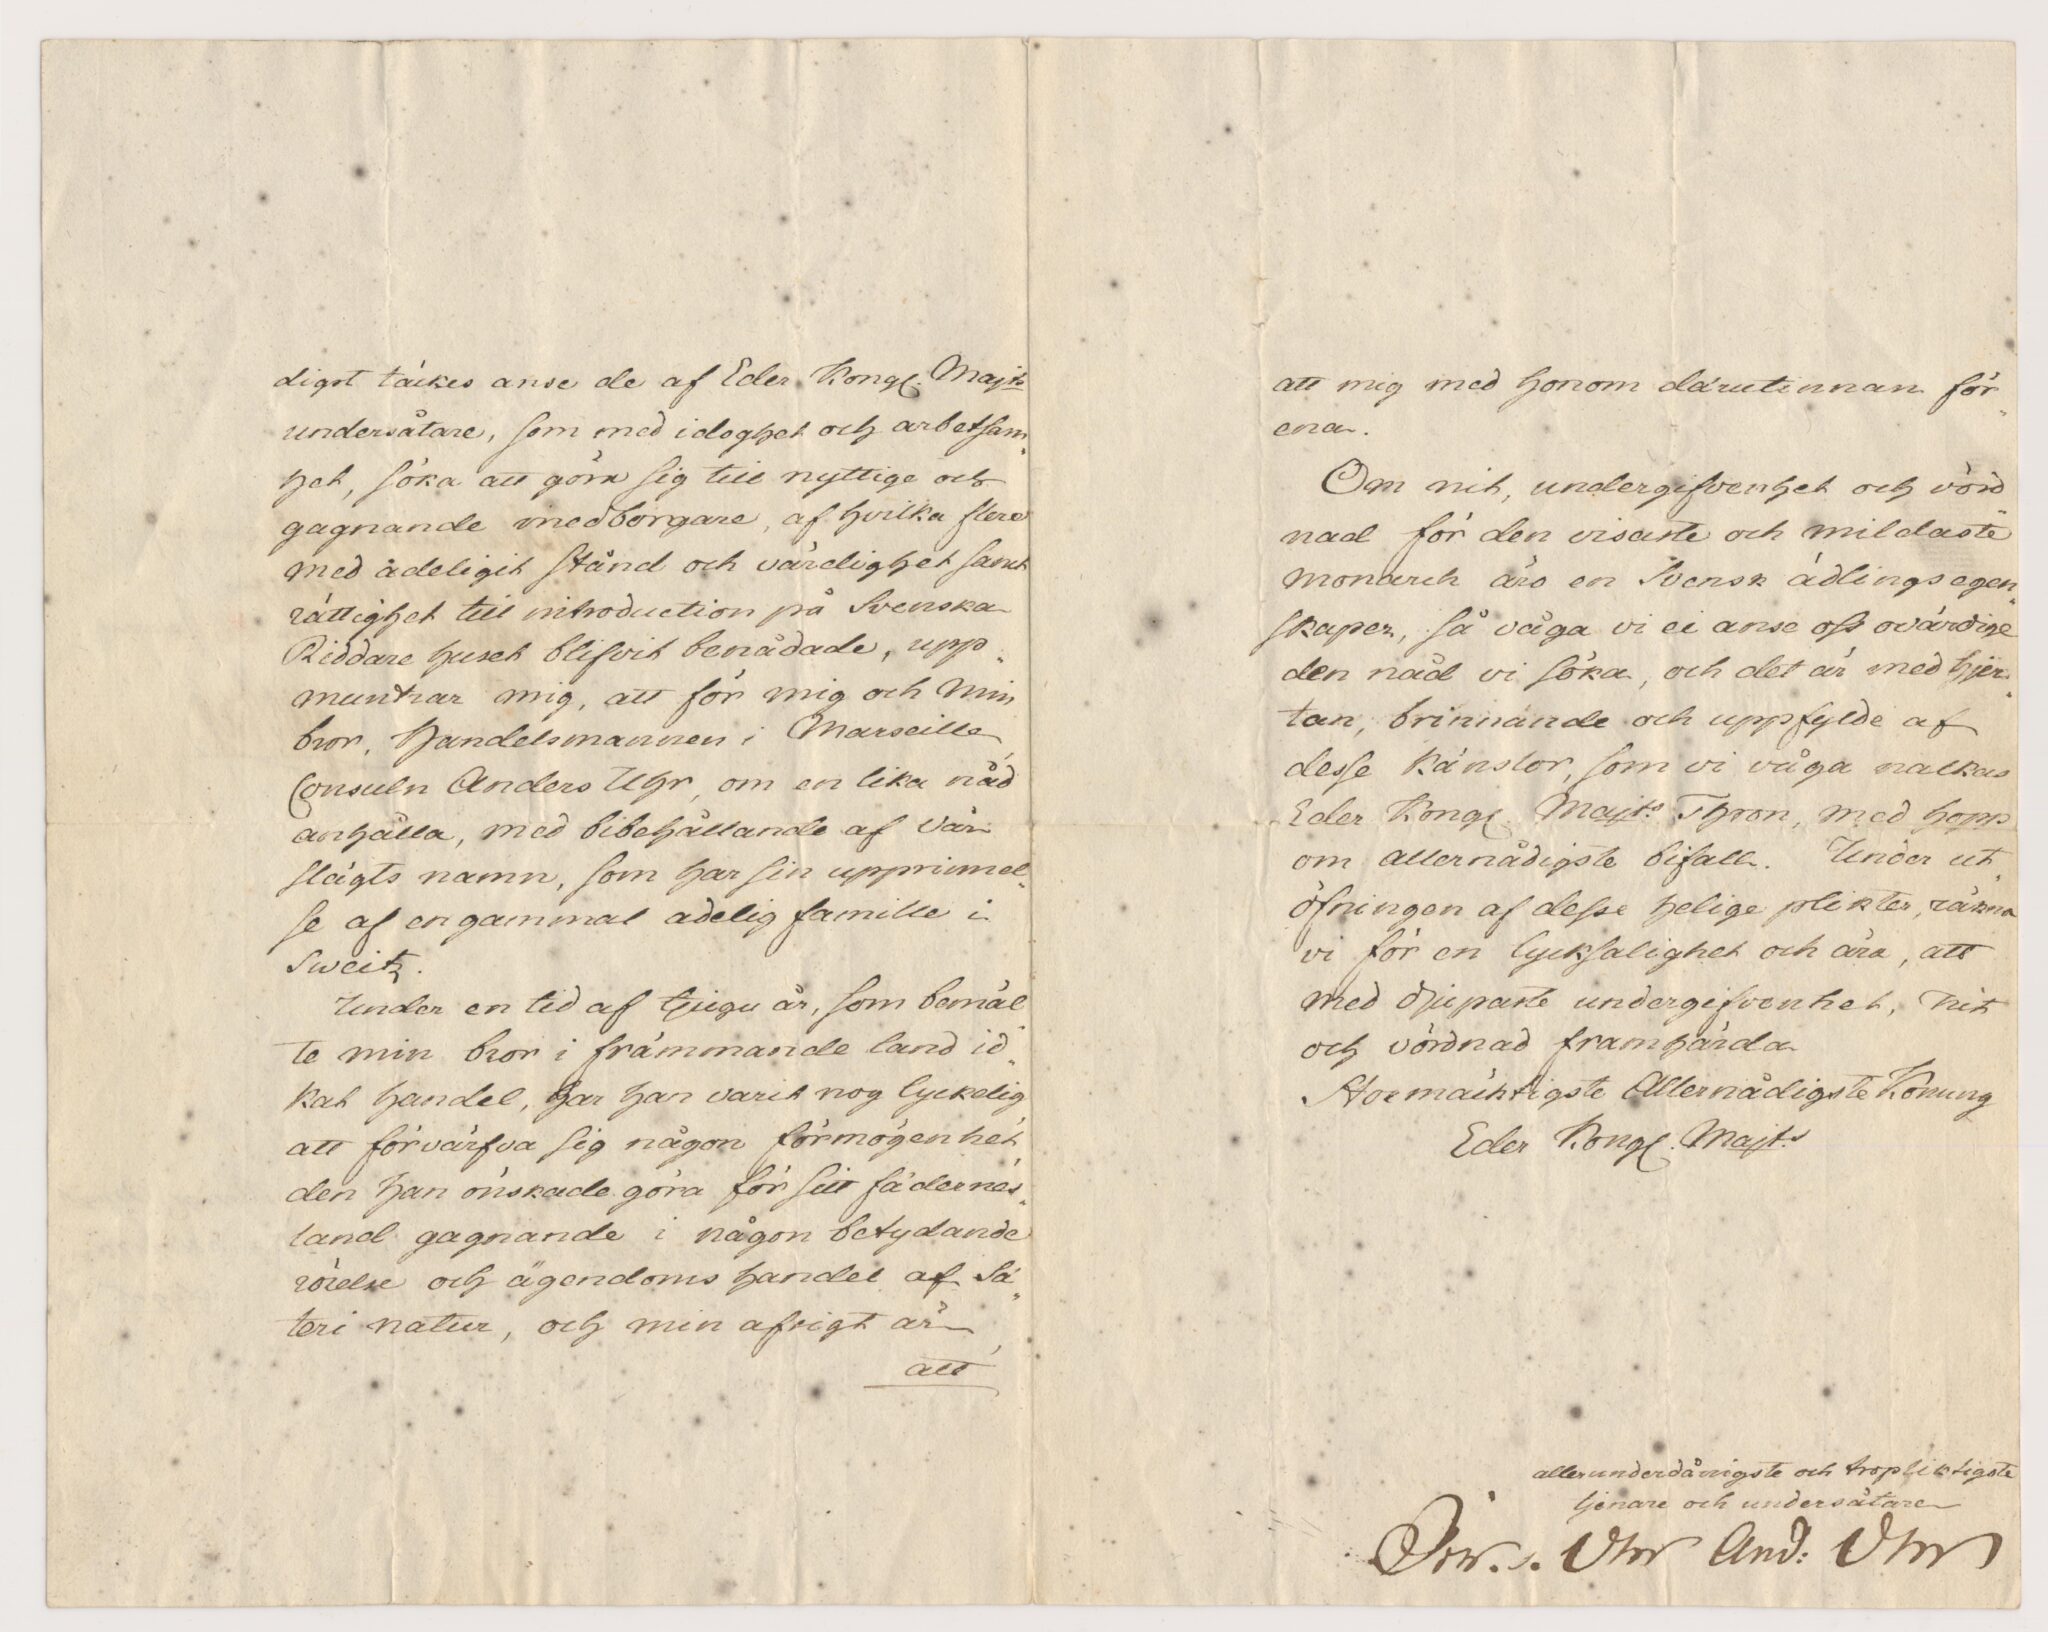 digst täckes anse de af Eder Kongl. Majts
undersåtare, som med idoghet och arbetsam„
het, söka att göra sig till nyttige och
gagnande medborgare, af hvilka flere
med adeligit stånd och värdighet samt
rättighet till introduction på Svenska
Riddare huset blifvit benådade, upp„
muntrar mig, att för mig och min
bror, Handelsmannen i Marseille
Consuln Anders Uhr, om en lika nåd
anhålla, med bibehållande af vår
slägts namn, som har sin upprinnel„
se af en gammal adelig famille i
Sweitz.
Under en tid af tjugu år, som bemäl„
te min bror i främmande land id„
kat handel, har han varit nog lyckelig
att förvärfva sig någon förmögenhet,
den han önskade göra för sitt fädernes„
land gagnande i någon betydande
rörelse och ägendoms handel af Sä„
teri natur, och min afsigt är
att
att mig med honom därutinnan för„
ena.
Om nit, undergifvenhet och vörd„
nad för den visaste och mildaste
monarch äro en Svensk ädlings egen„
skaper, så våga vi ei anse oss ovärdige
den nåd vi söka, och det är med hjer„
tan, brinnande och uppfylde af
desse känslor, som vi våga nalkas
Eder Kongl. Majts Thron, med hopp
om allernådigste bifall. Under ut„
öfningen af desse helige plikter, räkna
vi för en lycksalighet och ära, att
med djupaste undergifvenhet, nit
och vördnad framhärda
Stormäktigste Allernådigste Konung
Eder Kongl. Majts
allerunderdånigste och tropliktigste
tjenare och undersåtare
Uhr And: Uhr